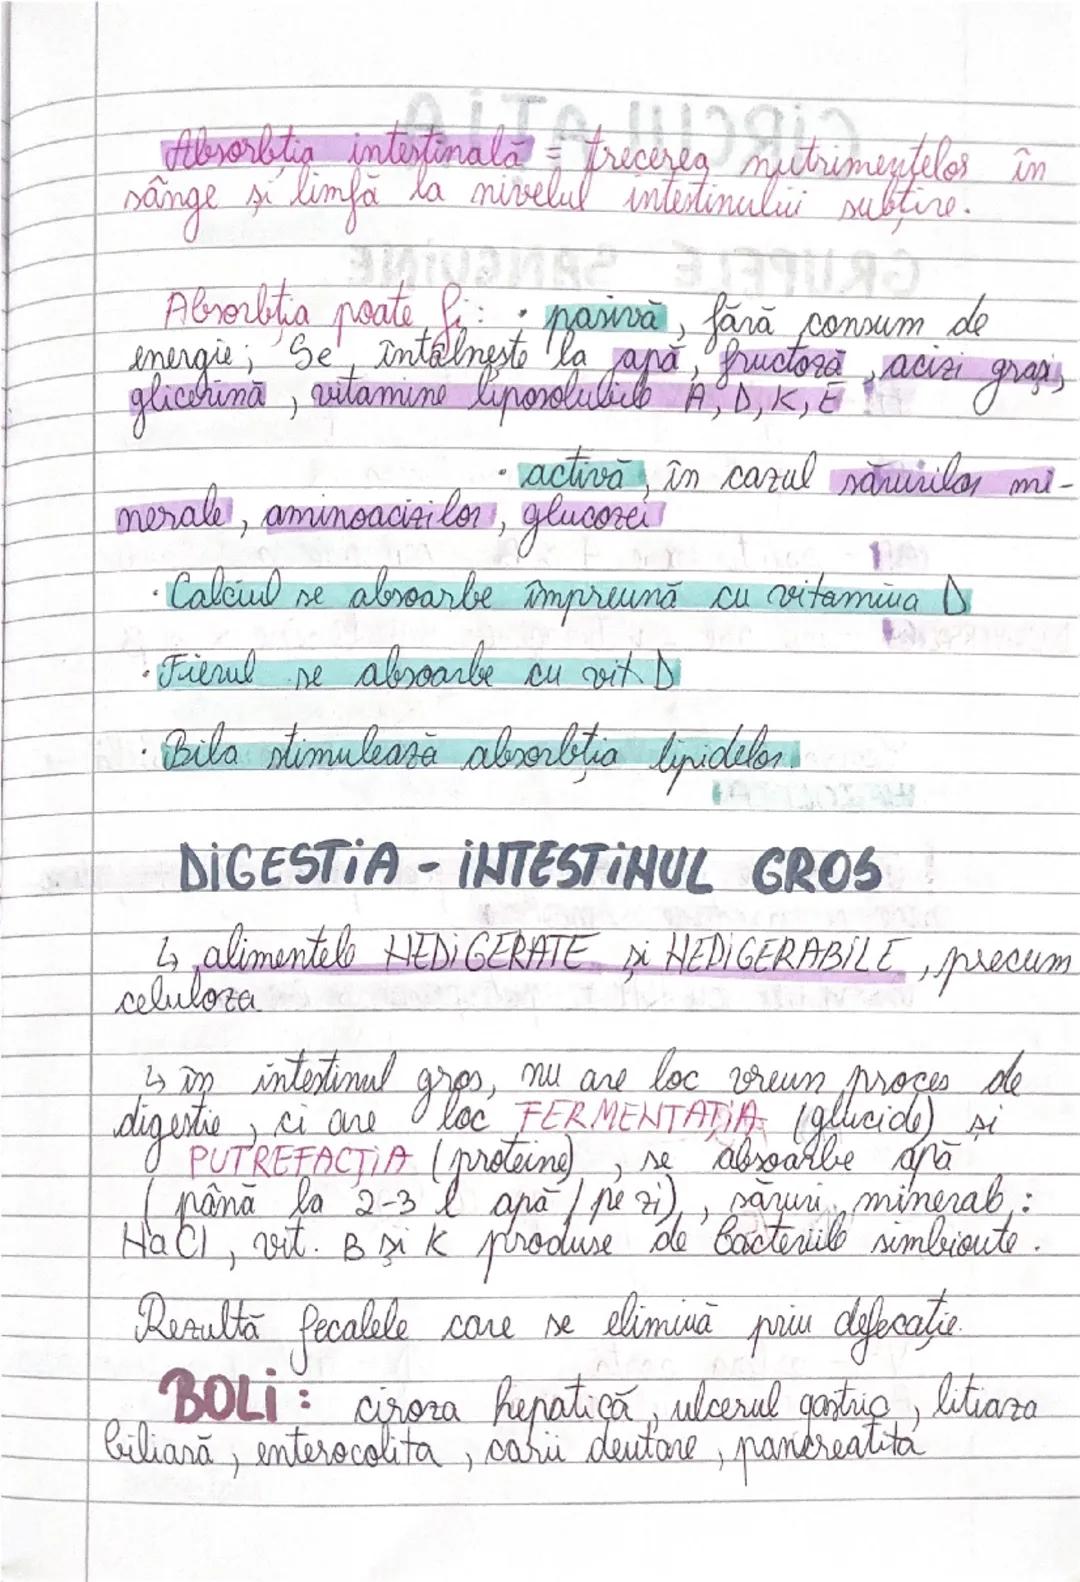 Absorbția intestinală = trecerea nutrimentelor în
sânge și limfă la nivelul intestinului subțire.
Absorbția poate fi: • pasivă, fără consum de
energie; Se întâlnește la apă, fructoză, acizi grași,
glicerină, vitamine liposolubile A, D, K, E
• activă, în cazul sărurilor mi-
nerale, aminoacizilor, glucozei
• Calciul se absoarbe împreună cu vitamina D
• Fierul se absoarbe cu vit D
• Bila stimulează absorbția lipidelor.
DIGESTIA - INTESTINUL GROS
↳ alimentele NEDIGERATE și NEDIGERABILE, precum
celuloza
↳ în intestinul gros, nu are loc vreun proces de
digestie, ci are loc FERMENTAȚIA (glucide) și
PUTREFACȚIA (proteine), se absoarbe apă
(până la 2-3 l apă / pe zi), săruri minerale:
NaCl, vit. B și K produse de bacteriile simbionte.
Rezultă fecalele care se elimină prin defecație.
BOLI: ciroza hepatică, ulcerul gastric, litiaza
biliară, enterocolita, carii dentare, pancreatita